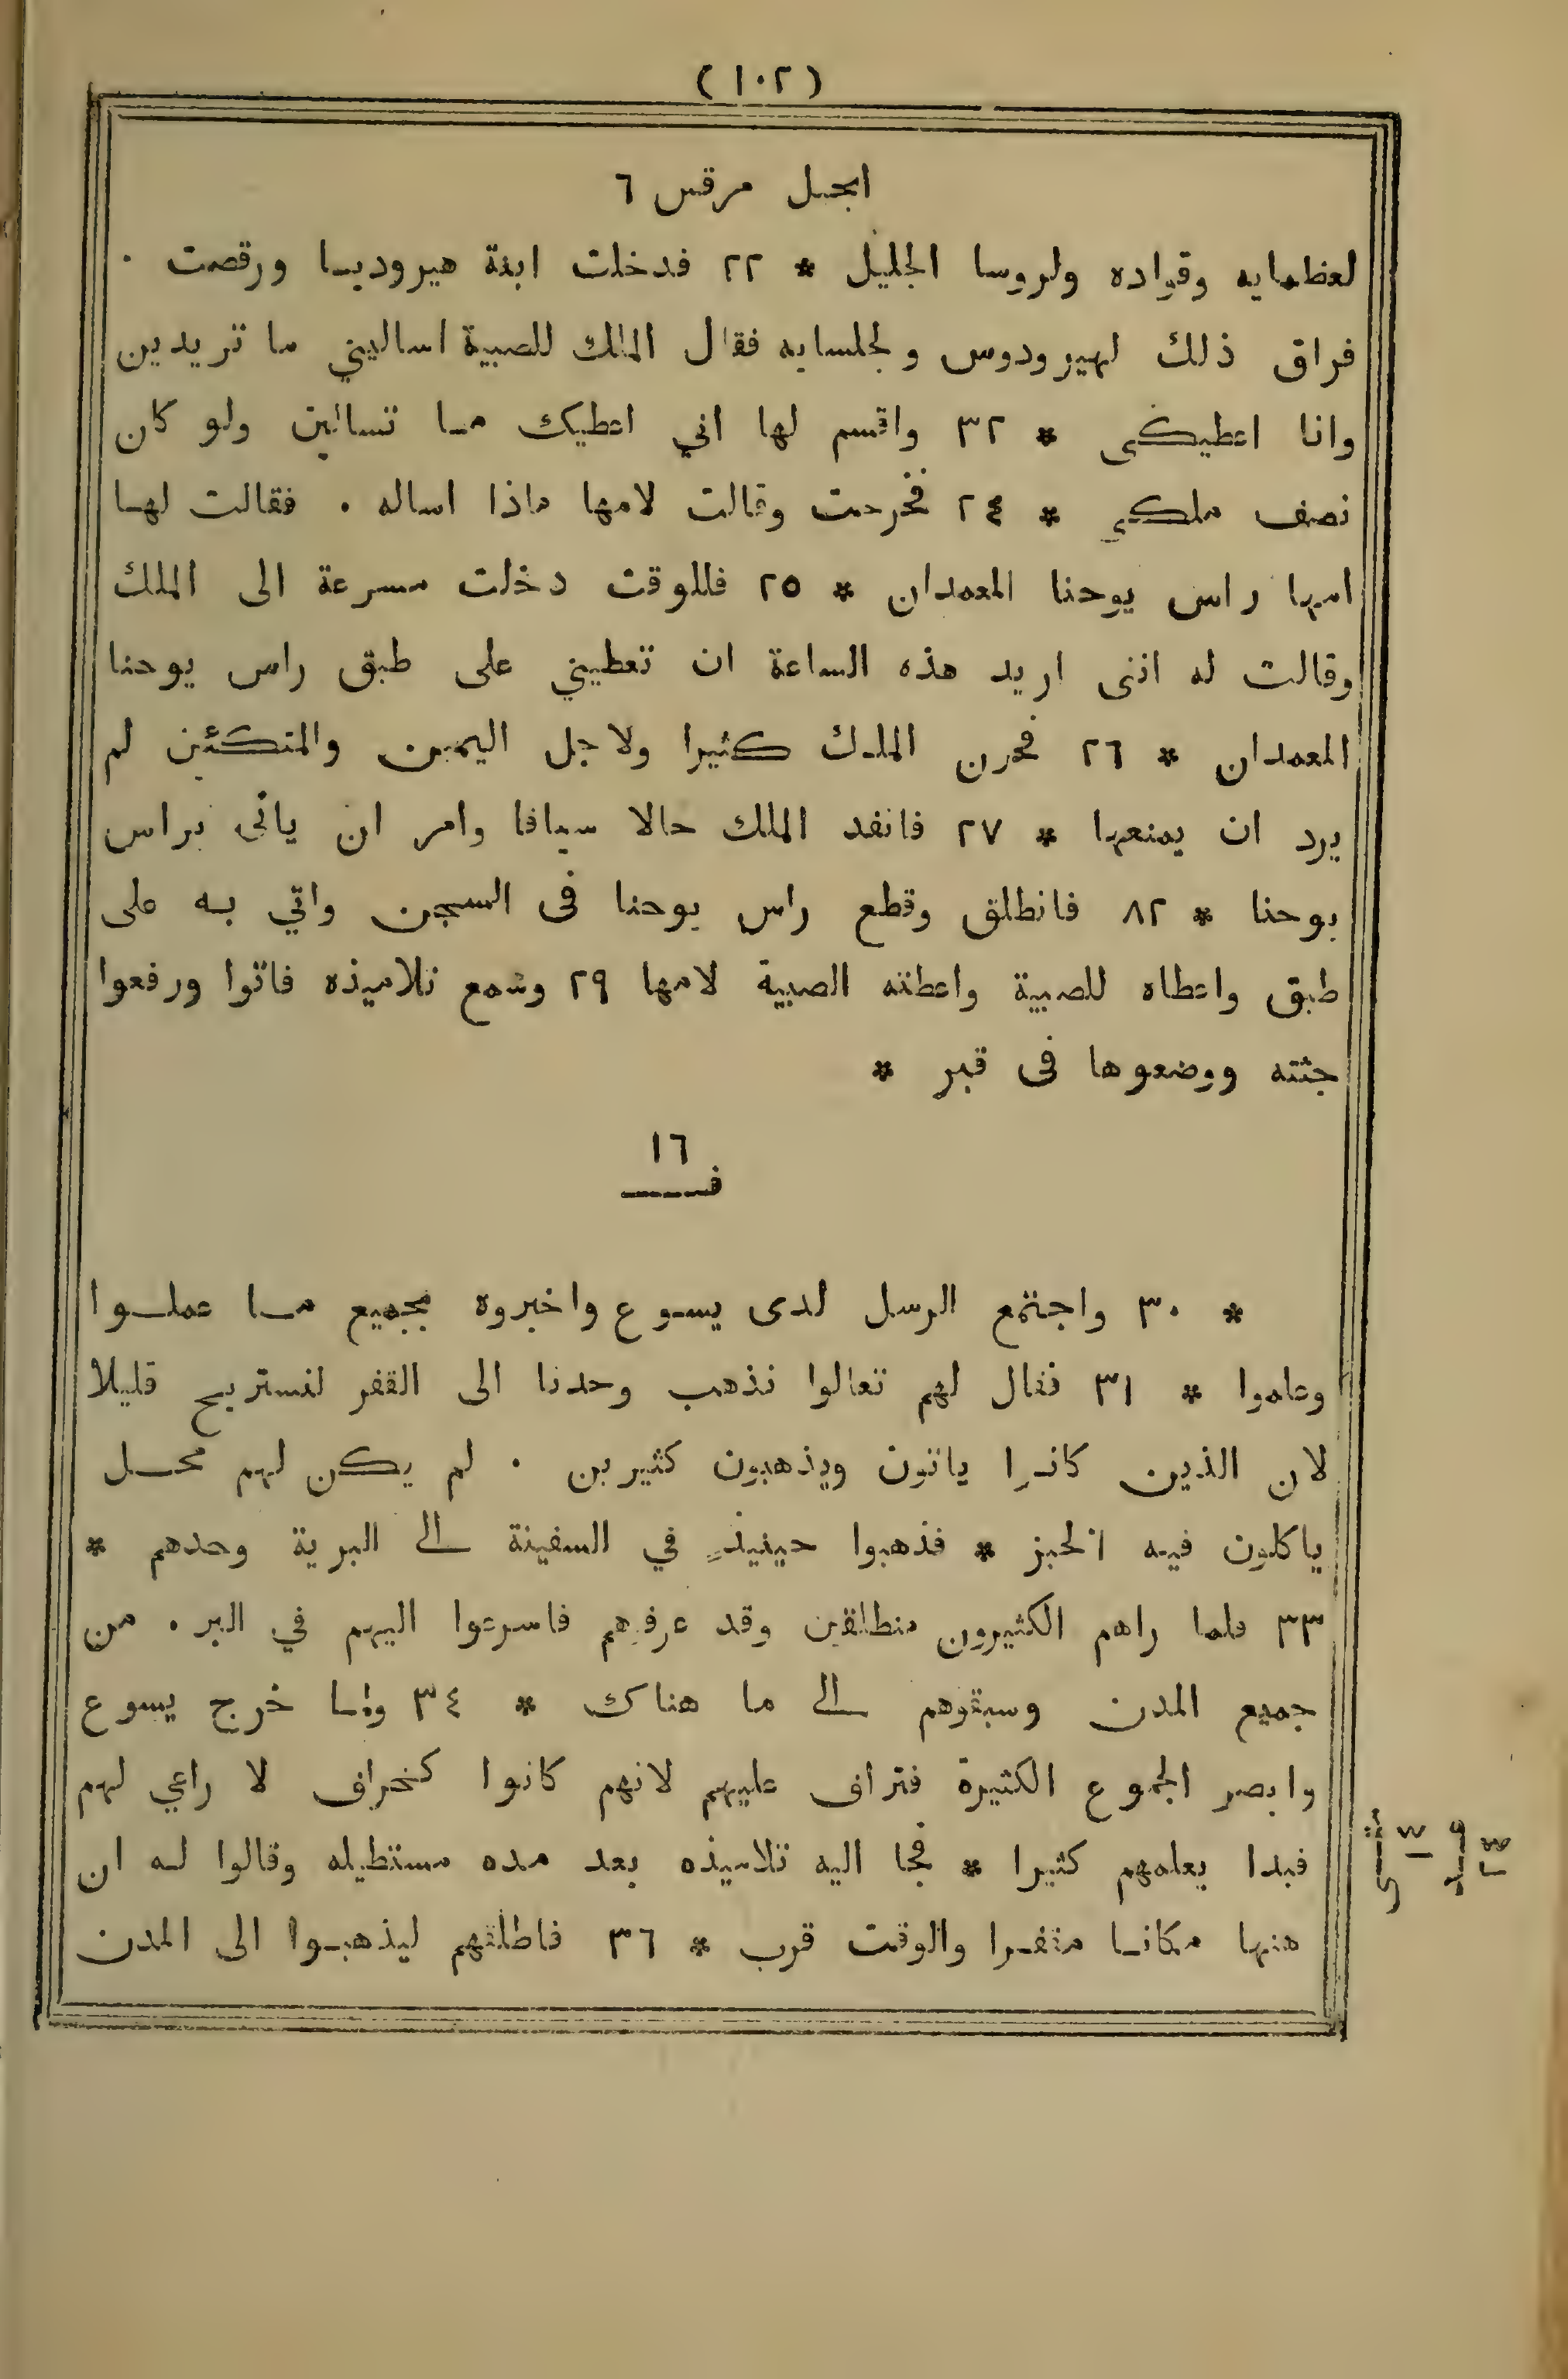 (١٠٢)
انجيل مرقس ٦
لعظمايه وقواده ولروسا الجليل * ٢٢ فدخلت ابنة هيروديا ورقصت .
فراق ذلك لهيرودوس ولجلسايه فقال الملك للصبية اساليني ما تريدين
وانا اعطيكي * ٣٢ واقسم لها اني اعطيك ما تسالين ولو كان
نصف ملكي * ٢٤ فخرجت وقالت لامها ماذا اساله . فقالت لها
امها راس يوحنا المعمدان * ٢٥ فللوقت دخلت مسرعة الى الملك
وقالت له اننى اريد هذه الساعة ان تعطيني على طبق راس يوحنا
المعمدان * ٢٦ فحزن الملك كثيرا ولاجل اليمين والمتكئين لم
يرد ان يمنعها * ٢٧ فانفد الملك حالا سيافا وامر ان ياتى براس
يوحنا * ٨٢ فانطلق وقطع راس يوحنا فى السجن واتي به على
طبق واعطاه للصبية واعطته الصبية لامها ٢٩ وسمع تلاميذه فاتوا ورفعوا
جثته ووضعوها فى قبر *
١٦
فـــ
* ٣٠ واجتمع الرسل لدى يسوع واخبروه بجميع ما عملوا
وعلموا * ٣١ فقال لهم تعالوا نذهب وحدنا الى القفر لنستريح قليلا
لان الذين كانوا ياتون ويذهبون كثيرين . لم يكن لهم محل
ياكلون فيه الخبز * فذهبوا حينيذٍ في السفينة الى البرية وحدهم *
٣٣ فلما راهم الكثيرون منطلقين وقد عرفوهم فاسرعوا اليهم في البر . من
جميع المدن وسبقوهم الى ما هناك * ٣٤ ولما خرج يسوع
وابصر الجموع الكثيرة فتراف عليهم لانهم كانوا كخراف لا راعي لهم
فبدا يعلمهم كثيرا * فجا اليه تلاميذه بعد مده مستطيله وقالوا له ان
هنها مكانا مقفرا والوقت قرب * ٣٦ فاطلقهم ليذهبوا الى المدن